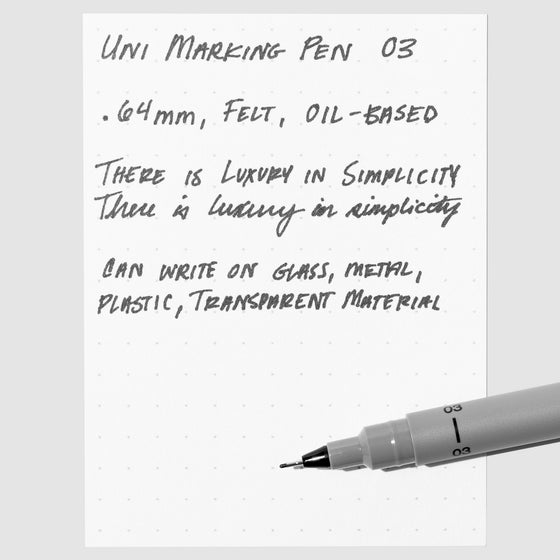 UNI MARKING PEN 03
.64mm, FELT, OIL-BASED
THERE IS LUXURY IN SIMPLICITY
There is luxury in simplicity
CAN WRITE ON GLASS, METAL,
PLASTIC, TRANSPARENT MATERIAL
03
03